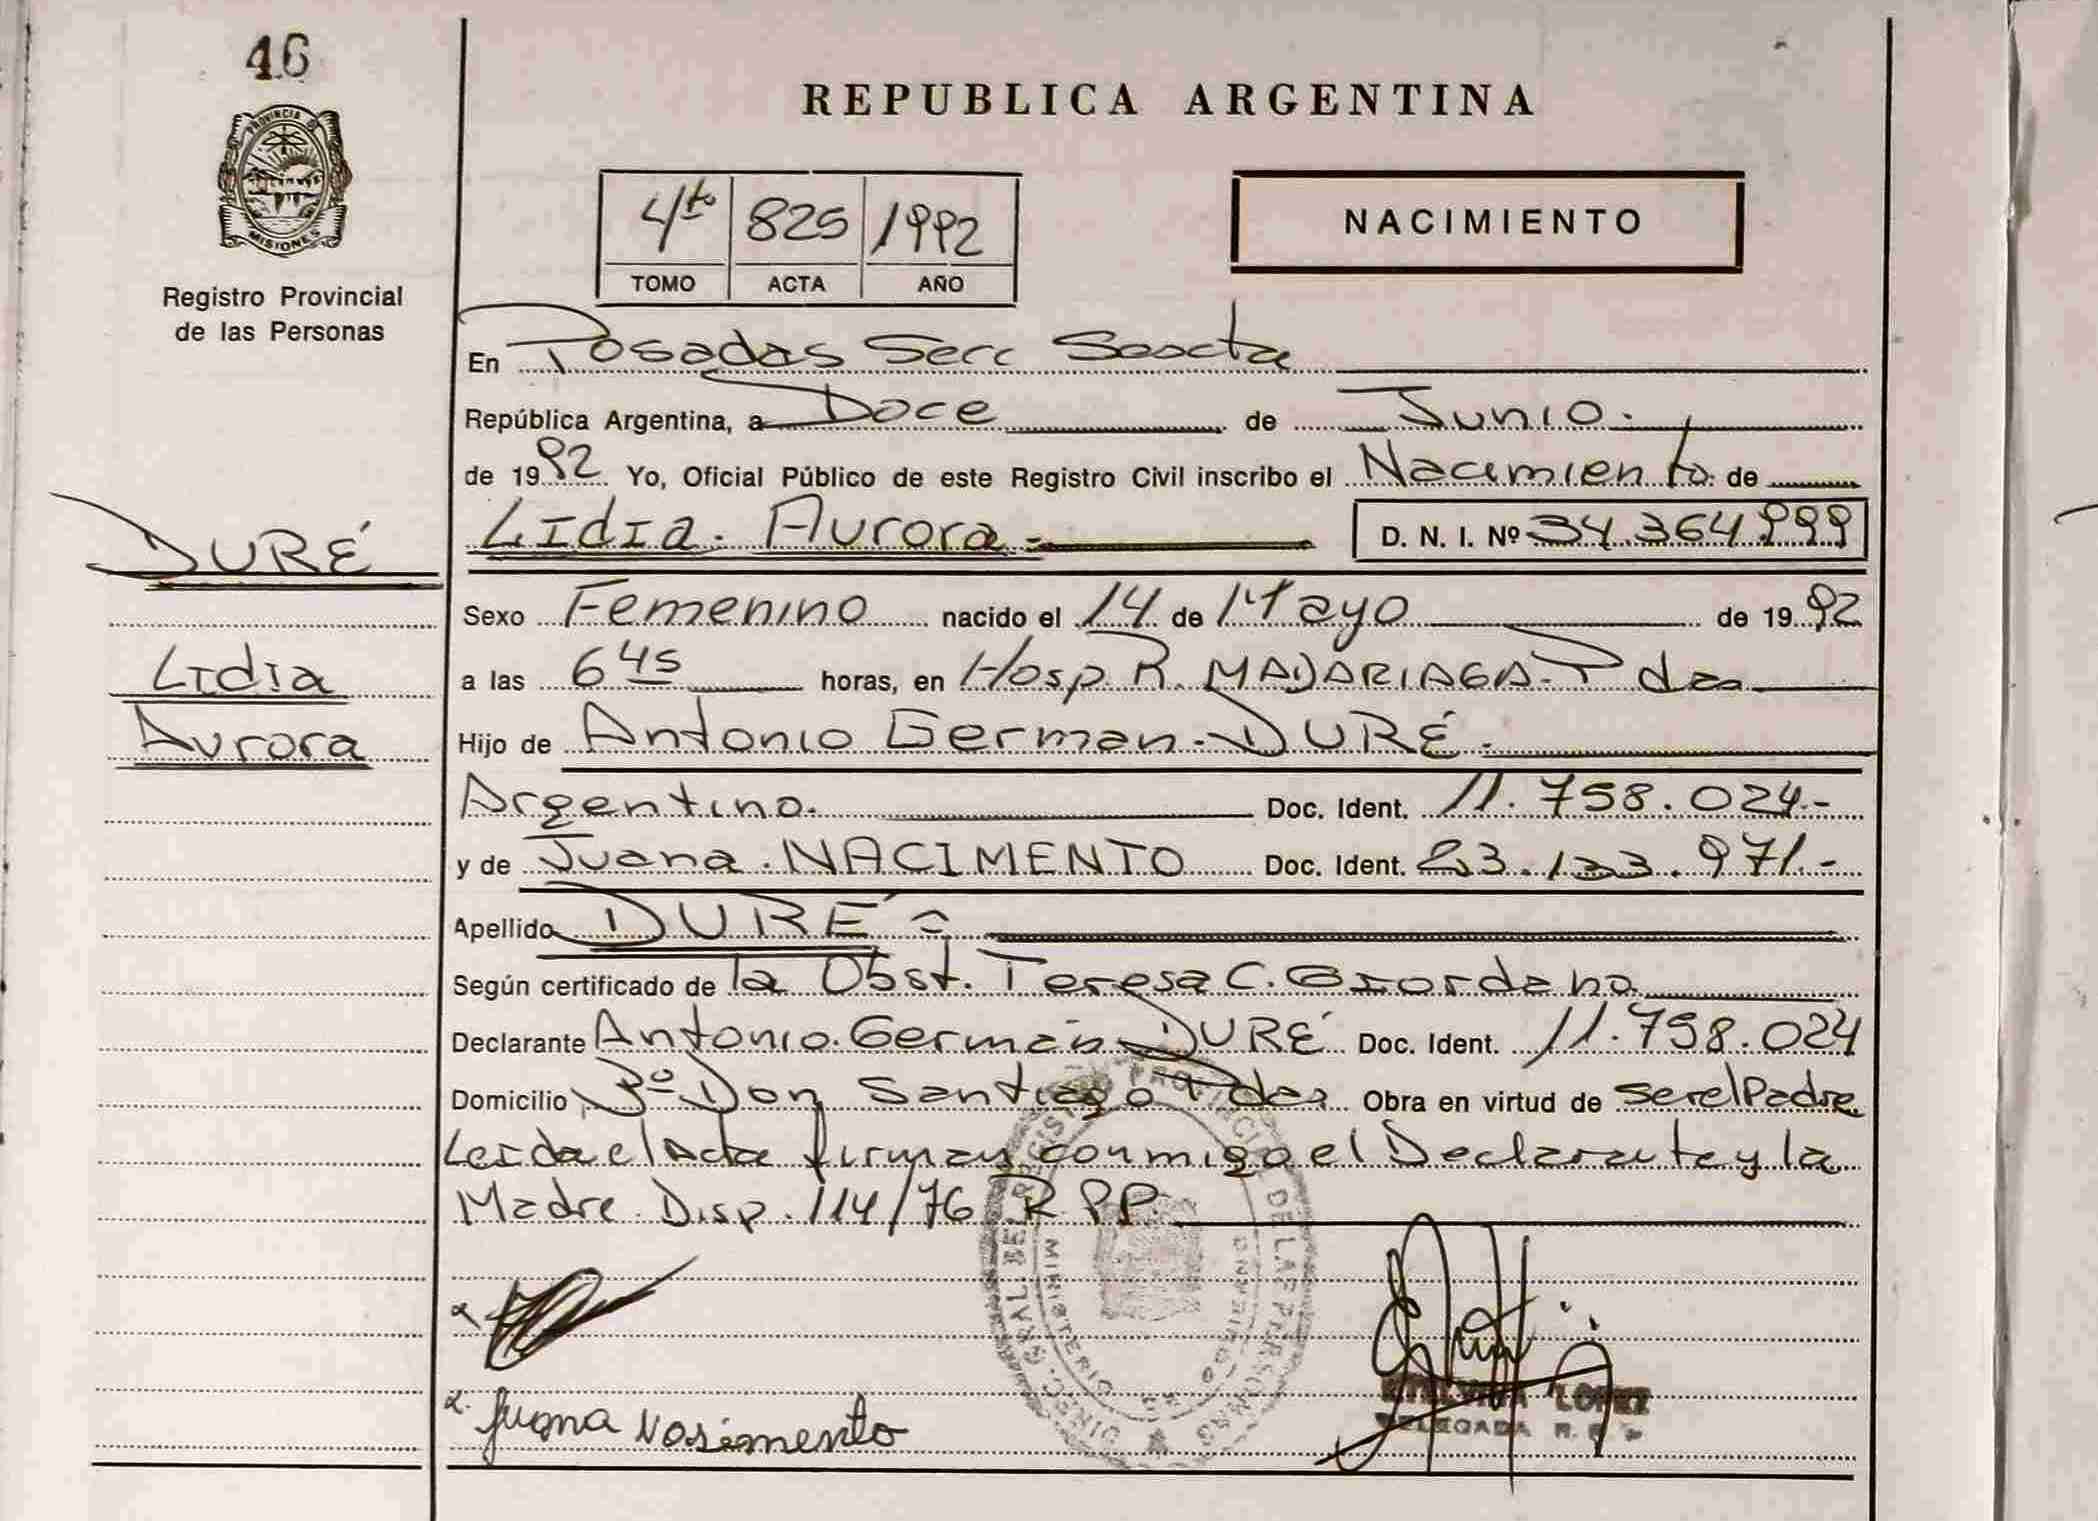 46
PROVINCIA D
MISIONES
Registro Provincial
de las Personas
REPUBLICA ARGENTINA
4to 825 1992
TOMO ACTA AÑO
NACIMIENTO
En Posadas Secc Sexcta
República Argentina, a Doce de Junio.
de 1992 Yo, Oficial Público de este Registro Civil inscribo el Nacimiento de
Lidia Aurora D. N. I. Nº 34.364.999
DURÉ
Lidia
Aurora
Sexo Femenino nacido el 14 de Mayo de 1992
a las 6 45 horas, en Hosp. R. MADARIAGA - Pdas
Hijo de Antonio German - DURÉ.
Argentino. Doc. Ident. 11.758.024.-
y de Juana. NACIMENTO Doc. Ident. 23.133.971.-
Apellido DURÉ
Según certificado de la Obst. Teresa C. Giordano
Declarante Antonio. German DURÉ Doc. Ident. 11.758.024
Domicilio Bº Don Santiago Pdas Obra en virtud de ser el Padre
Leida el Acta firman conmigo el Declarante y la
Madre. Disp. 114/76 R.P.P.
Juana Nasimento
LOPEZ
DELEGADA R. P.